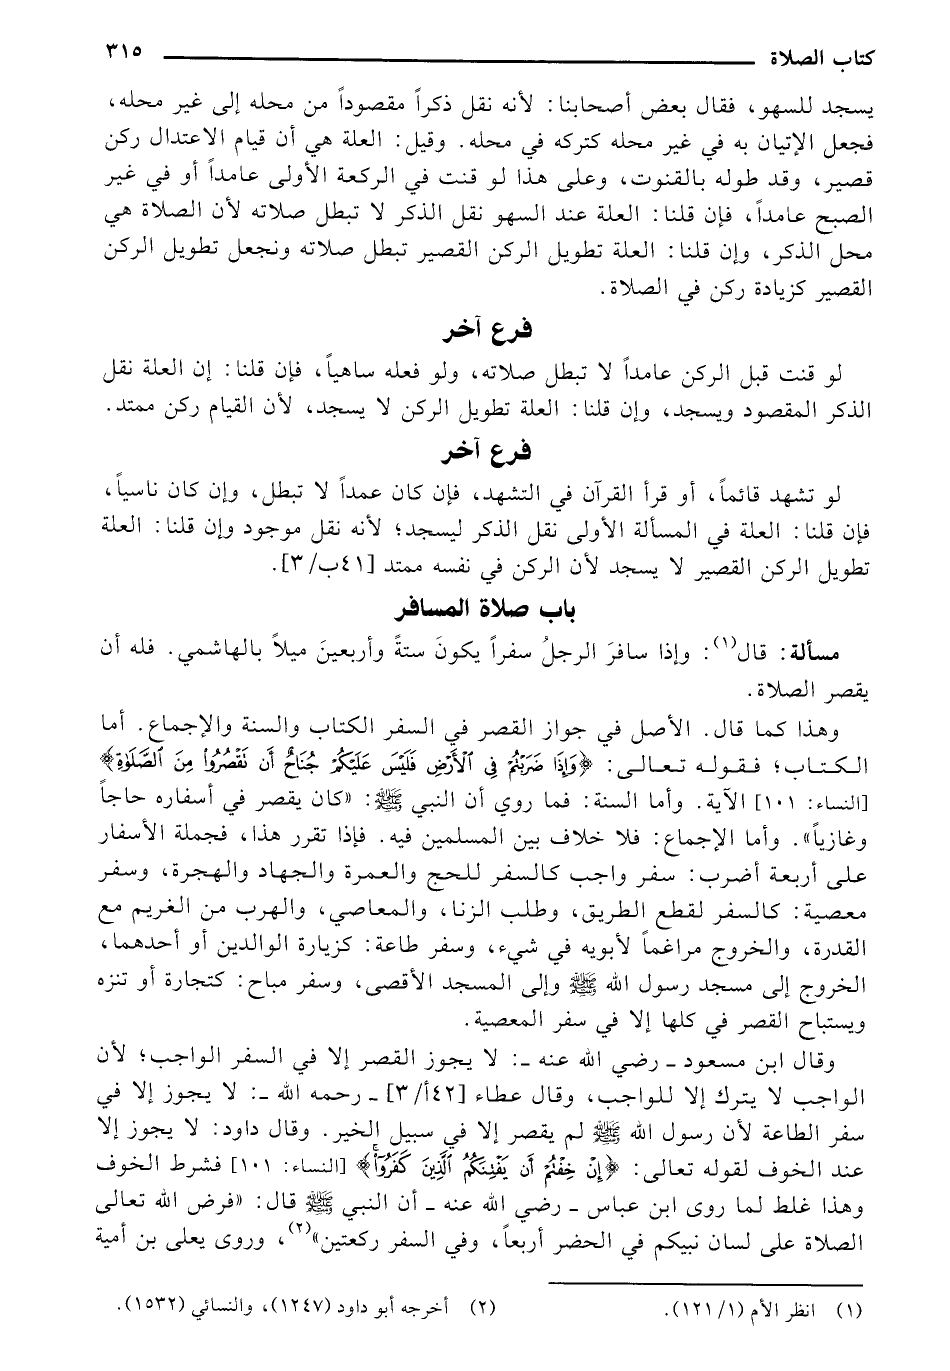 كتاب الصلاة ٣١٥
يسجد للسهو، فقال بعض أصحابنا: لأنه نقل ذكراً مقصوداً من محله إلى غير محله،
فجعل الإتيان به في غير محله كتركه في محله. وقيل: العلة هي أن قيام الاعتدال ركن
قصير، وقد طوله بالقنوت، وعلى هذا لو قنت في الركعة الأولى عامداً أو في غير
الصبح عامداً، فإن قلنا: العلة عند السهو نقل الذكر لا تبطل صلاته لأن الصلاة هي
محل الذكر، وإن قلنا: العلة تطويل الركن القصير تبطل صلاته ونجعل تطويل الركن
القصير كزيادة ركن في الصلاة.
فرع آخر
لو قنت قبل الركن عامداً لا تبطل صلاته، ولو فعله ساهياً، فإن قلنا: إن العلة نقل
الذكر المقصود ويسجد، وإن قلنا: العلة تطويل الركن لا يسجد، لأن القيام ركن ممتد.
فرع آخر
لو تشهد قائماً، أو قرأ القرآن في التشهد، فإن كان عمداً لا تبطل، وإن كان ناسياً،
فإن قلنا: العلة في المسألة الأولى نقل الذكر ليسجد؛ لأنه نقل موجود وإن قلنا: العلة
تطويل الركن القصير لا يسجد لأن الركن في نفسه ممتد [٤١ب/ ٣].
باب صلاة المسافر
مسألة: قال(١): وإذا سافرَ الرجلُ سفراً يكونَ ستةً وأربعينَ ميلاً بالهاشمي. فله أن
يقصر الصلاة.
وهذا كما قال. الأصل في جواز القصر في السفر الكتاب والسنة والإجماع. أما
الكتاب؛ فقوله تعالى: ﴿وَإِذَا ضَرَبْتُمْ فِي ٱلْأَرْضِ فَلَيْسَ عَلَيْكُمْ جُنَاحٌ أَن نَقْصُرُوا۟ مِنَ ٱلصَّلَوٰةِ﴾
[النساء: ١٠١] الآية. وأما السنة: فما روي أن النبي ﷺ: «كان يقصر في أسفاره حاجاً
وغازياً». وأما الإجماع: فلا خلاف بين المسلمين فيه. فإذا تقرر هذا، فجملة الأسفار
على أربعة أضرب: سفر واجب كالسفر للحج والعمرة والجهاد والهجرة، وسفر
معصية: كالسفر لقطع الطريق، وطلب الزنا، والمعاصي، والهرب من الغريم مع
القدرة، والخروج مراغماً لأبويه في شيء، وسفر طاعة: كزيارة الوالدين أو أحدهما،
الخروج إلى مسجد رسول الله ﷺ وإلى المسجد الأقصى، وسفر مباح: كتجارة أو تنزه
ويستباح القصر في كلها إلا في سفر المعصية.
وقال ابن مسعود ـ رضي الله عنه ـ: لا يجوز القصر إلا في السفر الواجب؛ لأن
الواجب لا يترك إلا للواجب، وقال عطاء [٤٢أ/ ٣] ـ رحمه الله ـ: لا يجوز إلا في
سفر الطاعة لأن رسول الله ﷺ لم يقصر إلا في سبيل الخير. وقال داود: لا يجوز إلا
عند الخوف لقوله تعالى: ﴿إِنْ خِفْتُمْ أَن يَفْتِنَكُمُ ٱلَّذِينَ كَفَرُوٓا۟﴾ [النساء: ١٠١] فشرط الخوف
وهذا غلط لما روى ابن عباس ـ رضي الله عنه ـ أن النبي ﷺ قال: «فرض الله تعالى
الصلاة على لسان نبيكم في الحضر أربعاً، وفي السفر ركعتين»(٢)، وروى يعلى بن أمية
(١) انظر الأم (١/ ١٢١).
(٢) أخرجه أبو داود (١٢٤٧)، والنسائي (١٥٣٢).